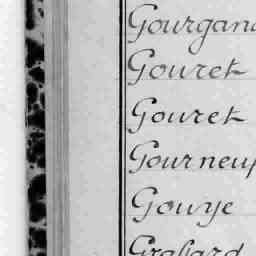 Gourgand
Gouret
Gouret
Gourneuf
Gouye
Graffard